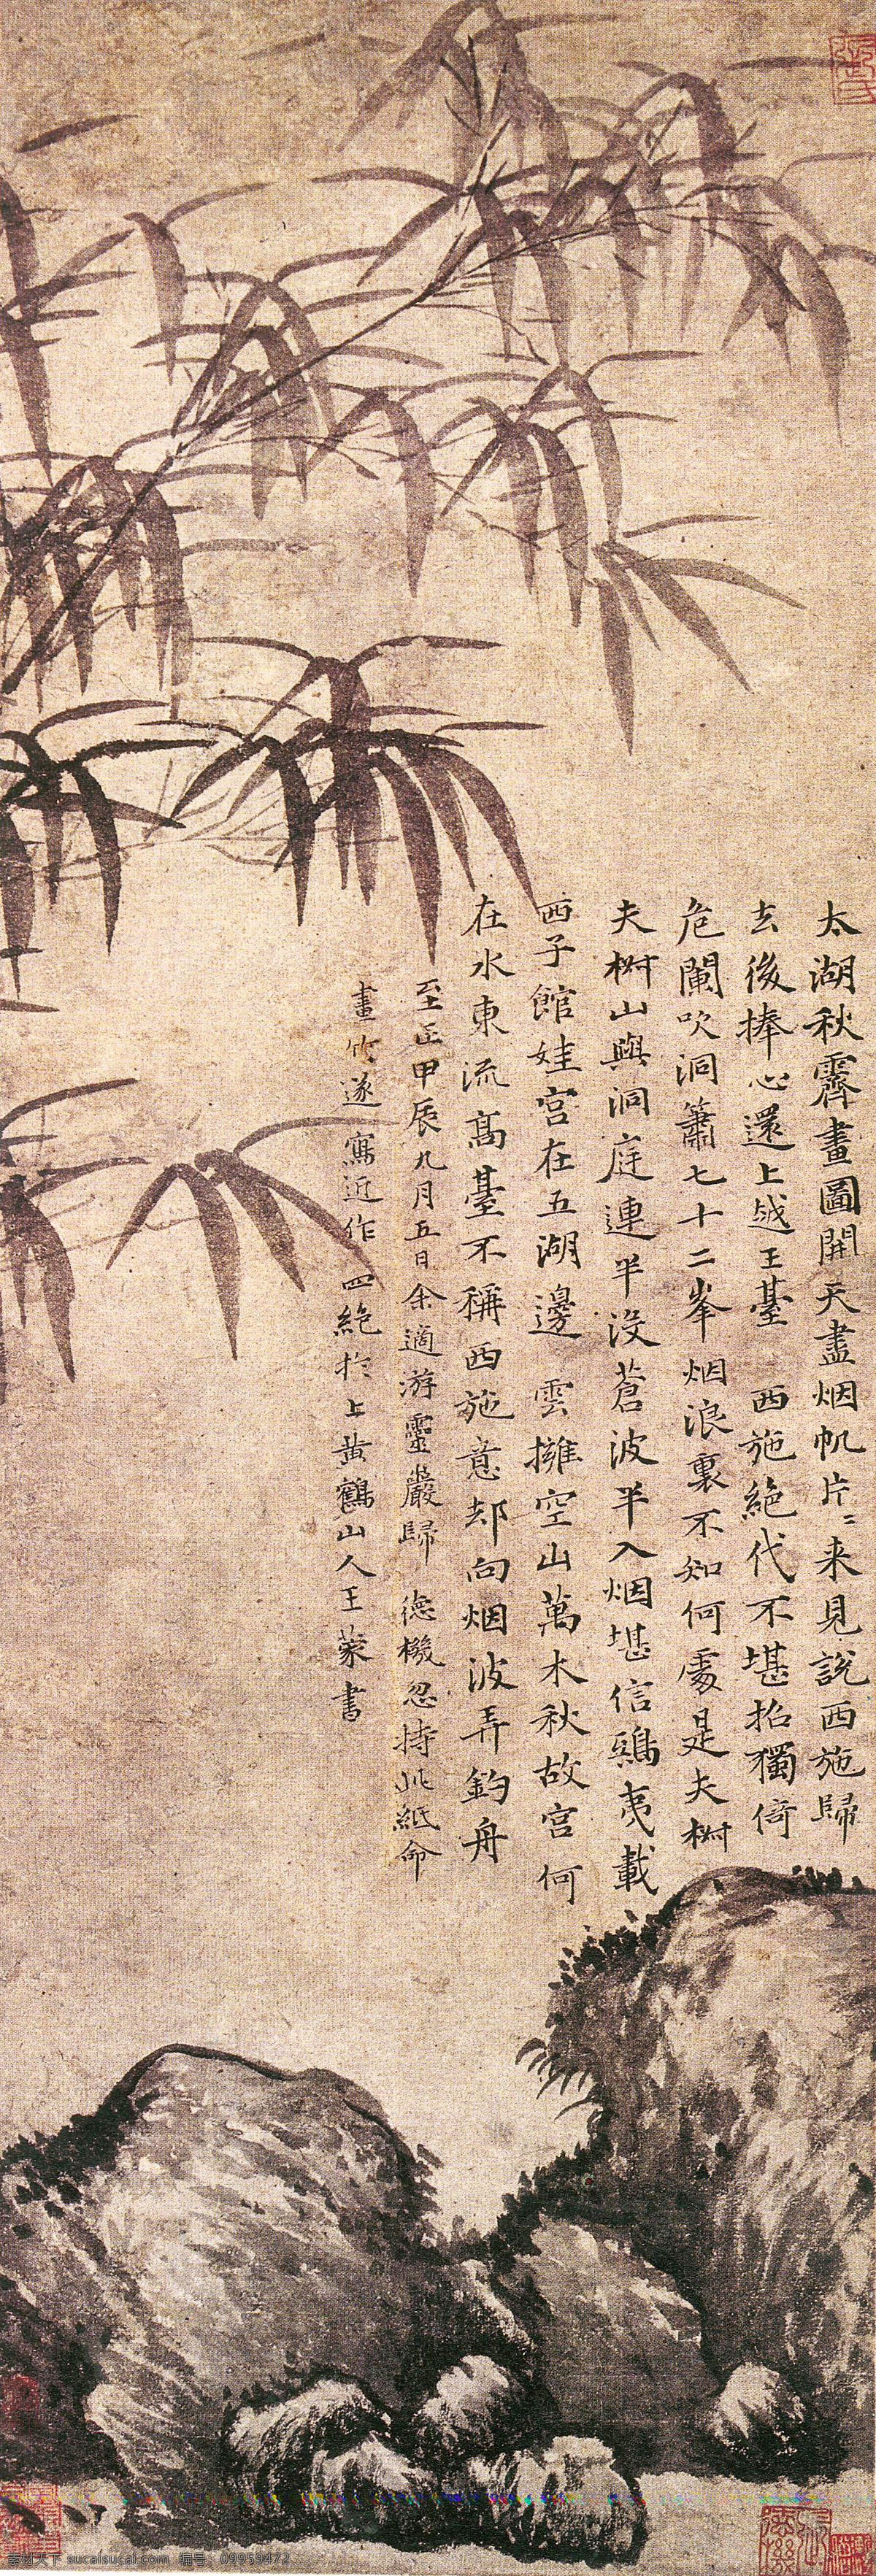 太湖秋霽畫圖開天盡烟帆片〻来見說西施歸
去後捧心還上越王臺　西施絕代不堪招獨倚
危闌吹洞簫七十二峯烟浪裏不知何處是夫椒
夫椒山與洞庭連半没蒼波半入烟堪信鴟夷載
西子館娃宮在五湖邊　雲擁空山萬木秋故宮何
在水東流高臺不稱西施意却向烟波弄釣舟
至正甲辰九月五日余適游靈巖歸　德機忽持此紙命
畫竹遂寫近作四絕於上黄鶴山人王蒙書
素材天下 sucaisucai.com 编号：09959472